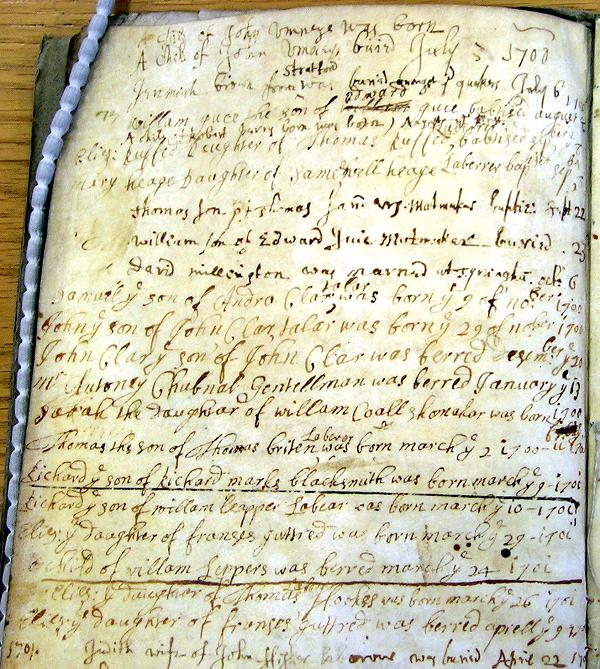 A Child of John Umney was born
A Child of John Umney buird July 3 1700
Stratford
Jeremiah brown from was buried amongst ye quakers July 6
edward
William guce the son of guce babtised august
A child of Robert was born
Eliz: Cuffed Daughter of Thomas Cuffed babtised sep
mary heage Daughter of Samewill heage Laberrer bap sep
Thomas son of Thomas Jarvis Matmaker baptiz: Sept 22
William son of Edward Juce Matmaker buried 23
david millington was married at oct: 6
talar
Samuell ye son of Andro Clar was born ye 9 of nober 1700
John ye son of John Clar talar was born ye 29 of nober 1700
John Clar ye son of John Clar was berred desember ye 20
Mr Antoney Chabnal Gentellman was berred January ye 13
Sarah the daughtar of william Coall shomakar was born 1700
Laberer
Thomas the son of Thomas briten was born march ye 2 1700
Richard ye son of Richard marks blacksmith was born march ye 9 - 1701
Richard ye son of willam leapper Labear was born march ye 10 - 1701
Eliz: ye daughter of franses guttred was born march ye 29 - 1701
a child of willam leppers was berred march ye 24 1701
Eliz: ye daughter of Thomas Hookes was born march ye 26 1701
Eliz: ye daughter of franses guttred was berred apriell ye 9
1701. Judith wife of John Fisher was buried April 22